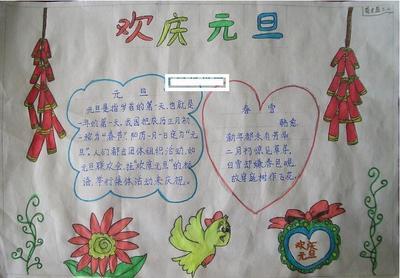 欢庆元旦
元 旦
元旦是指岁首的第一天,也就是
一年的第一天,我国把农历正月初
一称为“春节”,阳历一月一日定为“元
旦”。人们都去团体组织活动,如
元旦联欢会,挂“欢度元旦”的标
语,举行集体活动来庆祝。
春雪
韩愈
新年都未有芳华
二月初惊见草芽。
白雪却嫌春色晚
故穿庭树作飞花。
欢庆
元旦